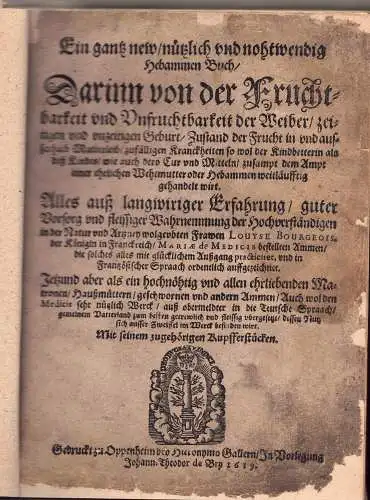 Ein gantz new/nützlich vnd nohtwendig
Hebammen Buch/
Darinn von der Frucht-
barkeit vnd Vnfruchtbarkeit der Weiber/ zei-
tigen vnd vnzeitigen Geburt/ Zustand der Frucht in vnd aus-
serhalb Mutterleib/ zufälligen Kranckheiten so wol der Kindbetterin als
deß Kindes/ wie auch dero Cur vnd Mitteln/ zusampt dem Ampt
einer ehelichen Wehmutter oder Hebammen weitläufftig
gehandelt wirt.
Alles auß langwiriger Erfahrung/ guter
Vorsorg vnd fleissiger Wahrnemmung der Hochverständigen
in der Natur vnd Artzney wolgeübten Frawen LOUYSE BOURGEOIS,
der Königin in Franckreich/ MARIÆ de MEDICIS bestellten Ammen/
die solches alles mit glücklichem Außgang practiciret, vnd in
Frantzösischer Spraach ordenlich auffgezeichnet.
Jetzund aber als ein hochnöhtig vnd allen ehrliebenden Ma-
tronen/ Haußmüttern/ geschwornen vnd andern Ammen/ Auch wol den
Medicis sehr nützlich Werck/ auß obermeldter in die Teutsche Spraach/
gemeinem Vatterland zum besten getrewlich vnd fleissig vbergesetzt/ dessen Nutz
sich ausser Zweiffel im Werck befinden wirt.
Mit seinem zugehörigen Kupfferstücken.
Gedruckt zu Oppenheim bey Hieronymo Gallern/ In Vorlegung
Johann-Theodor de Bry 1619.